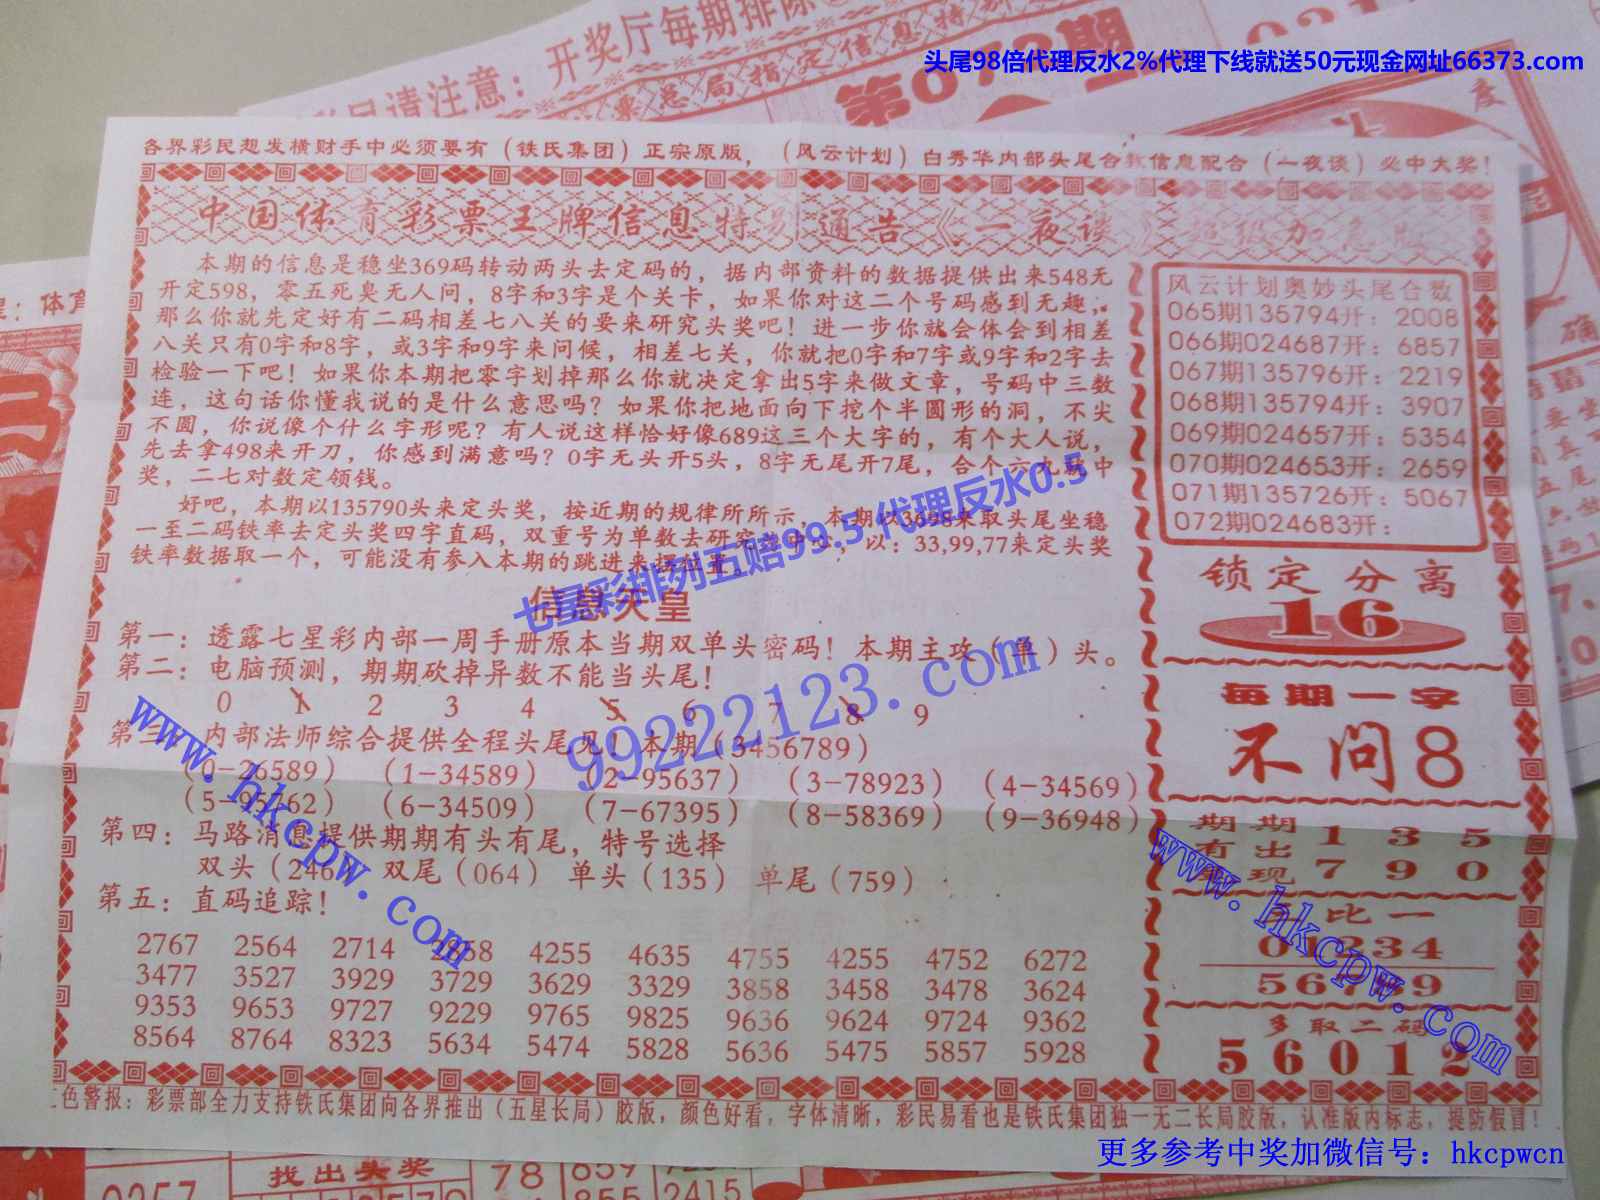 开奖厅每期排除
彩民请注意：
票总局指定信息特别
第072期
头尾98倍代理反水2%代理下线就送50元现金网址66373.com
各界彩民想发横财手中必须要有（铁氏集团）正宗原版，（风云计划）白秀华内部头尾合数信息配合（一夜谈）必中大奖！
中国体育彩票王牌信息特别通告《一夜谈》超级加急版
本期的信息是稳坐369码转动两头去定码的，据内部资料的数据提供出来548无
开定598，零五死臭无人问，8字和3字是个关卡，如果你对这二个号码感到无趣，
那么你就先定好有二码相差七八关的要来研究头奖吧！进一步你就会体会到相差
八关只有0字和8字，或3字和9字来问候，相差七关，你就把0字和7字或9字和2字去
检验一下吧！如果你本期把零字划掉那么你就决定拿出5字来做文章，号码中三数
连，这句话你懂我说的是什么意思吗？如果你把地面向下挖个半圆形的洞，不尖
不圆，你说像个什么字形呢？有人说这样恰好像689这三个大字的，有个大人说，
先去拿498来开刀，你感到满意吗？0字无头开5头，8字无尾开7尾，合个六九取中
奖，二七对数定领钱。
好吧，本期以135790头来定头奖，按近期的规律所所示，本期以3698来取头尾坐稳
一至二码铁率去定头奖四字直码，双重号为单数去研究为中心，以：33,99,77来定头奖
铁率数据取一个，可能没有参入本期的跳进来摆位置。
七星彩排列五赔99.5,代理反水0.5
信息天皇
第一：透露七星彩内部一周手册原本当期双单头密码！本期主攻（单）头。
第二：电脑预测，期期砍掉异数不能当头尾！
0 1 2 3 4 5 6 7 8 9
第三：内部法师综合提供全程头尾见！本期（3456789）
（0-26589）（1-34589）（2-95637）（3-78923）（4-34569）
（5-95762）（6-34509）（7-67395）（8-58369）（9-36948）
第四：马路消息提供期期有头有尾，特号选择
双头（246 双尾（064）单头（135）单尾（759）
第五：直码追踪！
2767 2564 2714 2858 4255 4635 4755 4255 4752 6272
3477 3527 3929 3729 3629 3329 3858 3458 3478 3624
9353 9653 9727 9229 9765 9825 9636 9624 9724 9362
8564 8764 8323 5634 5474 5828 5636 5475 5857 5928
风云计划奥妙头尾合数
065期135794开：2008
066期024687开：6857
067期135796开：2219
068期135794开：3907
069期024657开：5354
070期024653开：2659
071期135726开：5067
072期024683开：
锁定分离
16
每期一字
不问8
期期 1 3 5
有出
现 7 9 0
比一
01234
56789
多取二码
56012
色警报：彩票部全力支持铁氏集团向各界推出（五星长局）胶版，颜色好看，字体清晰，彩民易看也是铁氏集团独一无二长局胶版，认准版内标志，提防假冒！
99222123.com
www.hkcpw.com
www.hkcpw.com
更多参考中奖加微信号：hkcpwcn
找出头奖
78 859
855 2415
0257